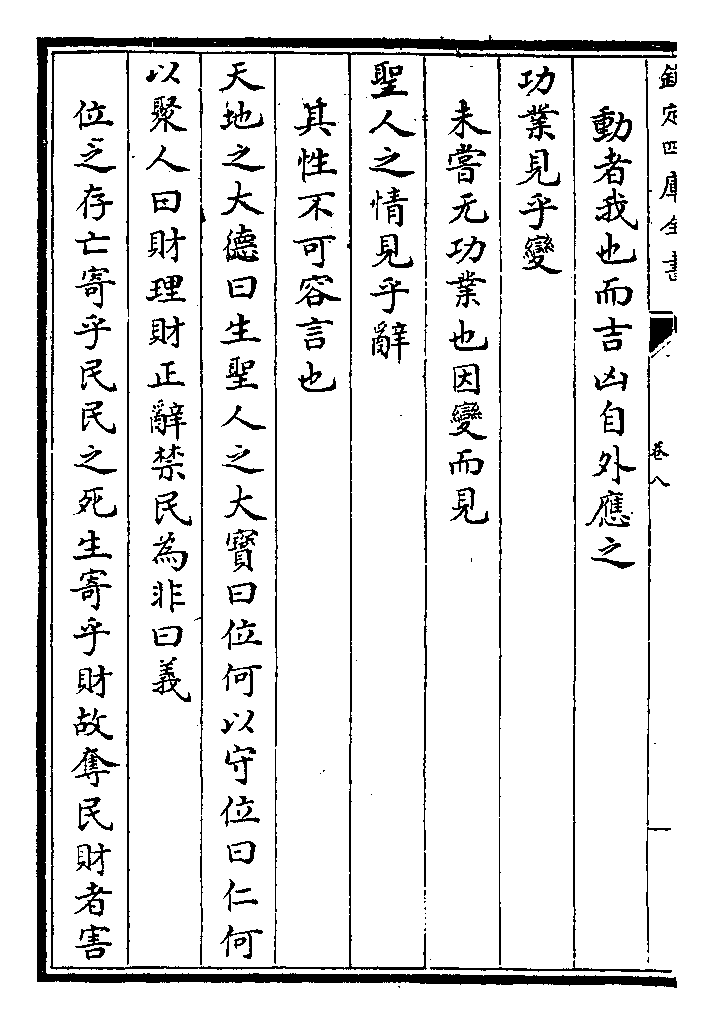 欽定四庫全書
卷八
動者我也而吉凶自外應之
功業見乎變
未嘗无功業也因變而見
聖人之情見乎辭
其性不可容言也
天地之大德曰生聖人之大寳曰位何以守位曰仁何
以聚人曰財理財正辭禁民為非曰義
位之存亡寄乎民民之死生寄乎財故奪民財者害